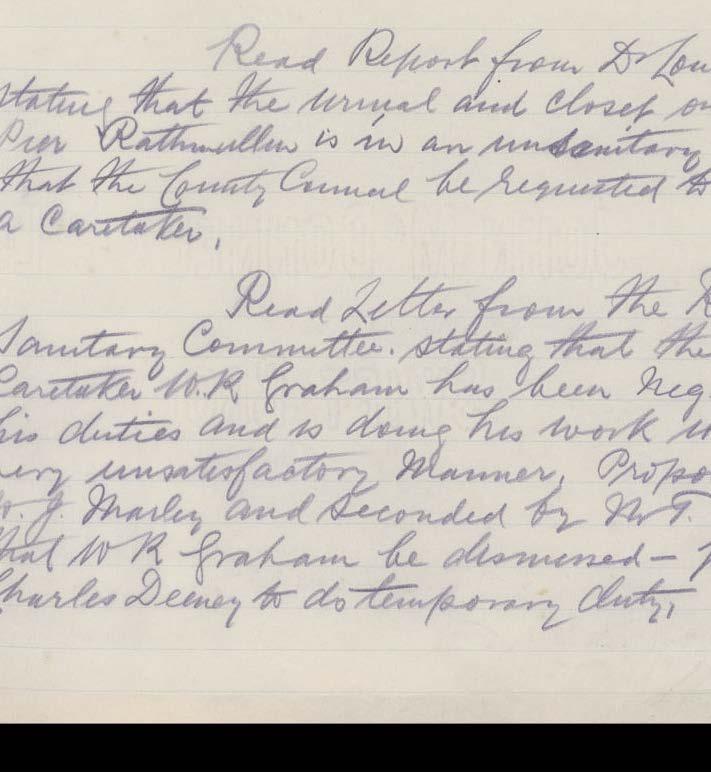 Read Report from Dr Lou
stating that the urinal and closet on
Pier Rathmullen is in an unsanitary
that the County Council be requested to
a Caretaker,
Read Letter from the R
Sanitary Committee. stating that the
Caretaker W.R Graham has been Neg
his duties and is doing his work
very unsatisfactory Manner, Propo
W. J. Marley and seconded by Mr T.
that W R Graham be dismissed –
Charles Deeney to do temporary duty,